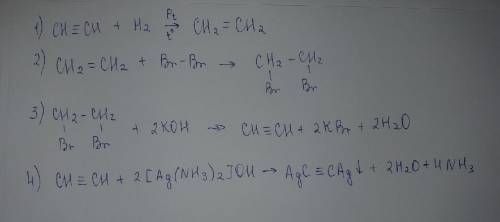 1) CH≡CH + H₂ →(Pt, t°) CH₂=CH₂
2) CH₂=CH₂ + Br-Br → CH₂-CH₂
Br Br
3) CH₂-CH₂ + 2KOH → CH≡CH + 2KBr + 2H₂O
Br Br
4) CH≡CH + 2[Ag(NH₃)₂]OH → AgC≡CAg↓ + 2H₂O + 4NH₃